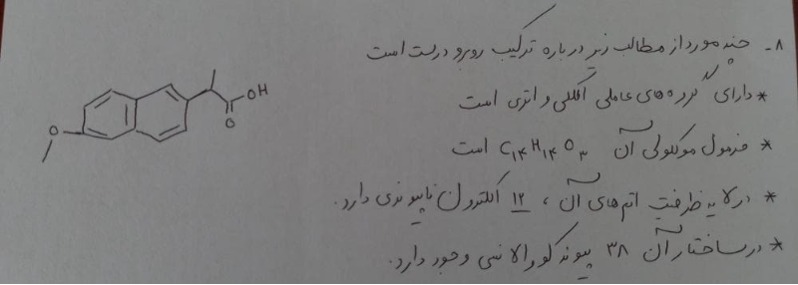 ۸- چند مورد از مطالب زیر درباره ترکیب روبرو درست است
* دارای گروه های عاملی الکلی و اتری است
* فرمول مولکولی آن C۱۴H۱۴O۳ است
* در لایه ظرفیت اتم های آن ، ۱۲ الکترون ناپیوندی دارد.
* در ساختار آن ۳۸ پیوند کووالانسی وجود دارد.
O
OH
O